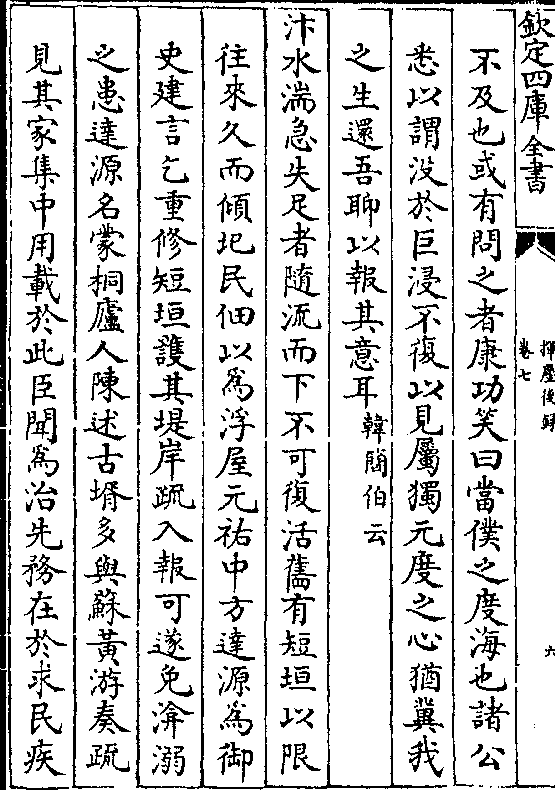 欽定四庫全書
揮麈後錄
卷七
六
不及也或有問之者康功笑曰當僕之度海也諸公
悉以謂没於巨浸不復以見屬獨元度之心猶冀我
之生還吾聊以報其意耳韓簡伯云
汴水湍急失足者隨流而下不可復活舊有短垣以限
往來久而傾圮民佃以為浮屋元祐中方達源為御
史建言乞重修短垣護其堤岸疏入報可遂免渰溺
之患達源名蒙桐廬人陳述古壻多與蘇黃游奏疏
見其家集中用載於此臣聞為治先務在於求民疾